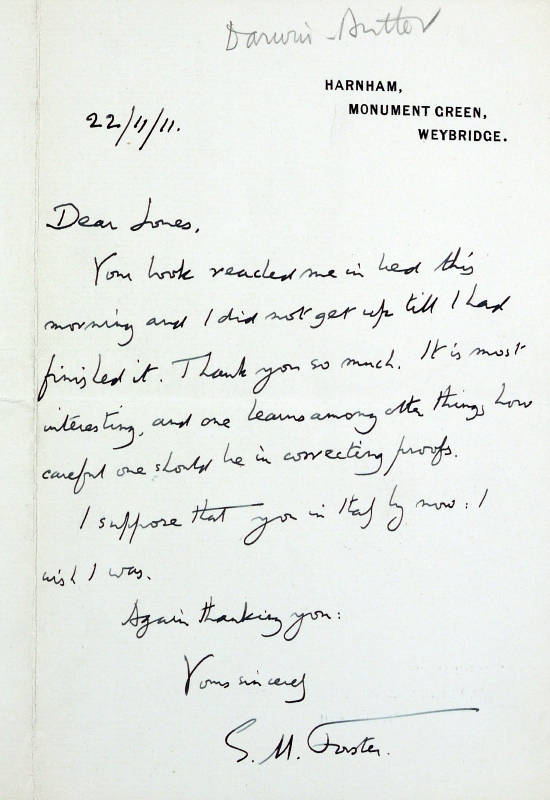 Darwin - Butler
HARNHAM,
MONUMENT GREEN,
WEYBRIDGE.
22/11/11.
Dear Jones,
Your book reached me in bed this
morning and I did not get up till I had
finished it. Thank you so much. It is most
interesting, and one learns among other things how
careful one should be in correcting proofs.
I suppose that you in Italy by now: I
wish I was.
Again thanking you:
Yours sincerely
E. M. Forster.